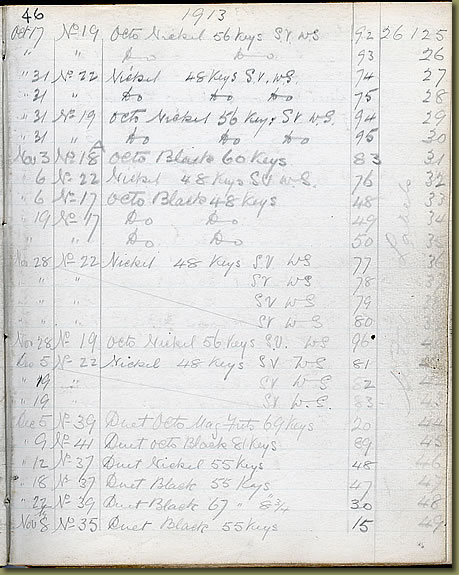 46 1913
Oct 17 No 19 Octo Nickel 56 Keys SV WS 92 26125
" " Do Do 93 26
" 31 No 22 Nickel 48 Keys S.V. WS. 74 27
" 31 Do Do Do 75 28
" 31 No 19 Octo Nickel 56 Keys SV WS. 94 29
" 31 Do Do Do 95 30
Nov 3 No 18A Octo Black 60 Keys 83 31
" 6 No 22 Nickel 48 Keys SV WS. 76 32
" 6 No 17 Octo Black 48 Keys 48 33
19 No 17 Do Do 49 34
" " Do Do 50 35
Nov 28 No 22 Nickel 48 Keys SV WS 77 36
" " SV WS 78
" " SV WS 79
" " SV WS 80
Nov 28 No 19 Octo Nickel 56 Keys SV. WS 96
Dec 5 No 22 Nickel 48 Keys SV WS 81
" 19 " SV WS 82
" 19 SV W.S. 83
Dec 5 No 39 Duet Octo Mag 69 Keys 20 44
" 9 No 41 Duet Octo Black 81 Keys 89 45
" 12 No 37 Duet Nickel 55 Keys 48
" 18 No 37 Duet Black 55 Keys 47
" 22 No 39 Duet Black 67 " 8 3/4 30 48
Nov 8 No 35 Duet Black 55 Keys 15 49